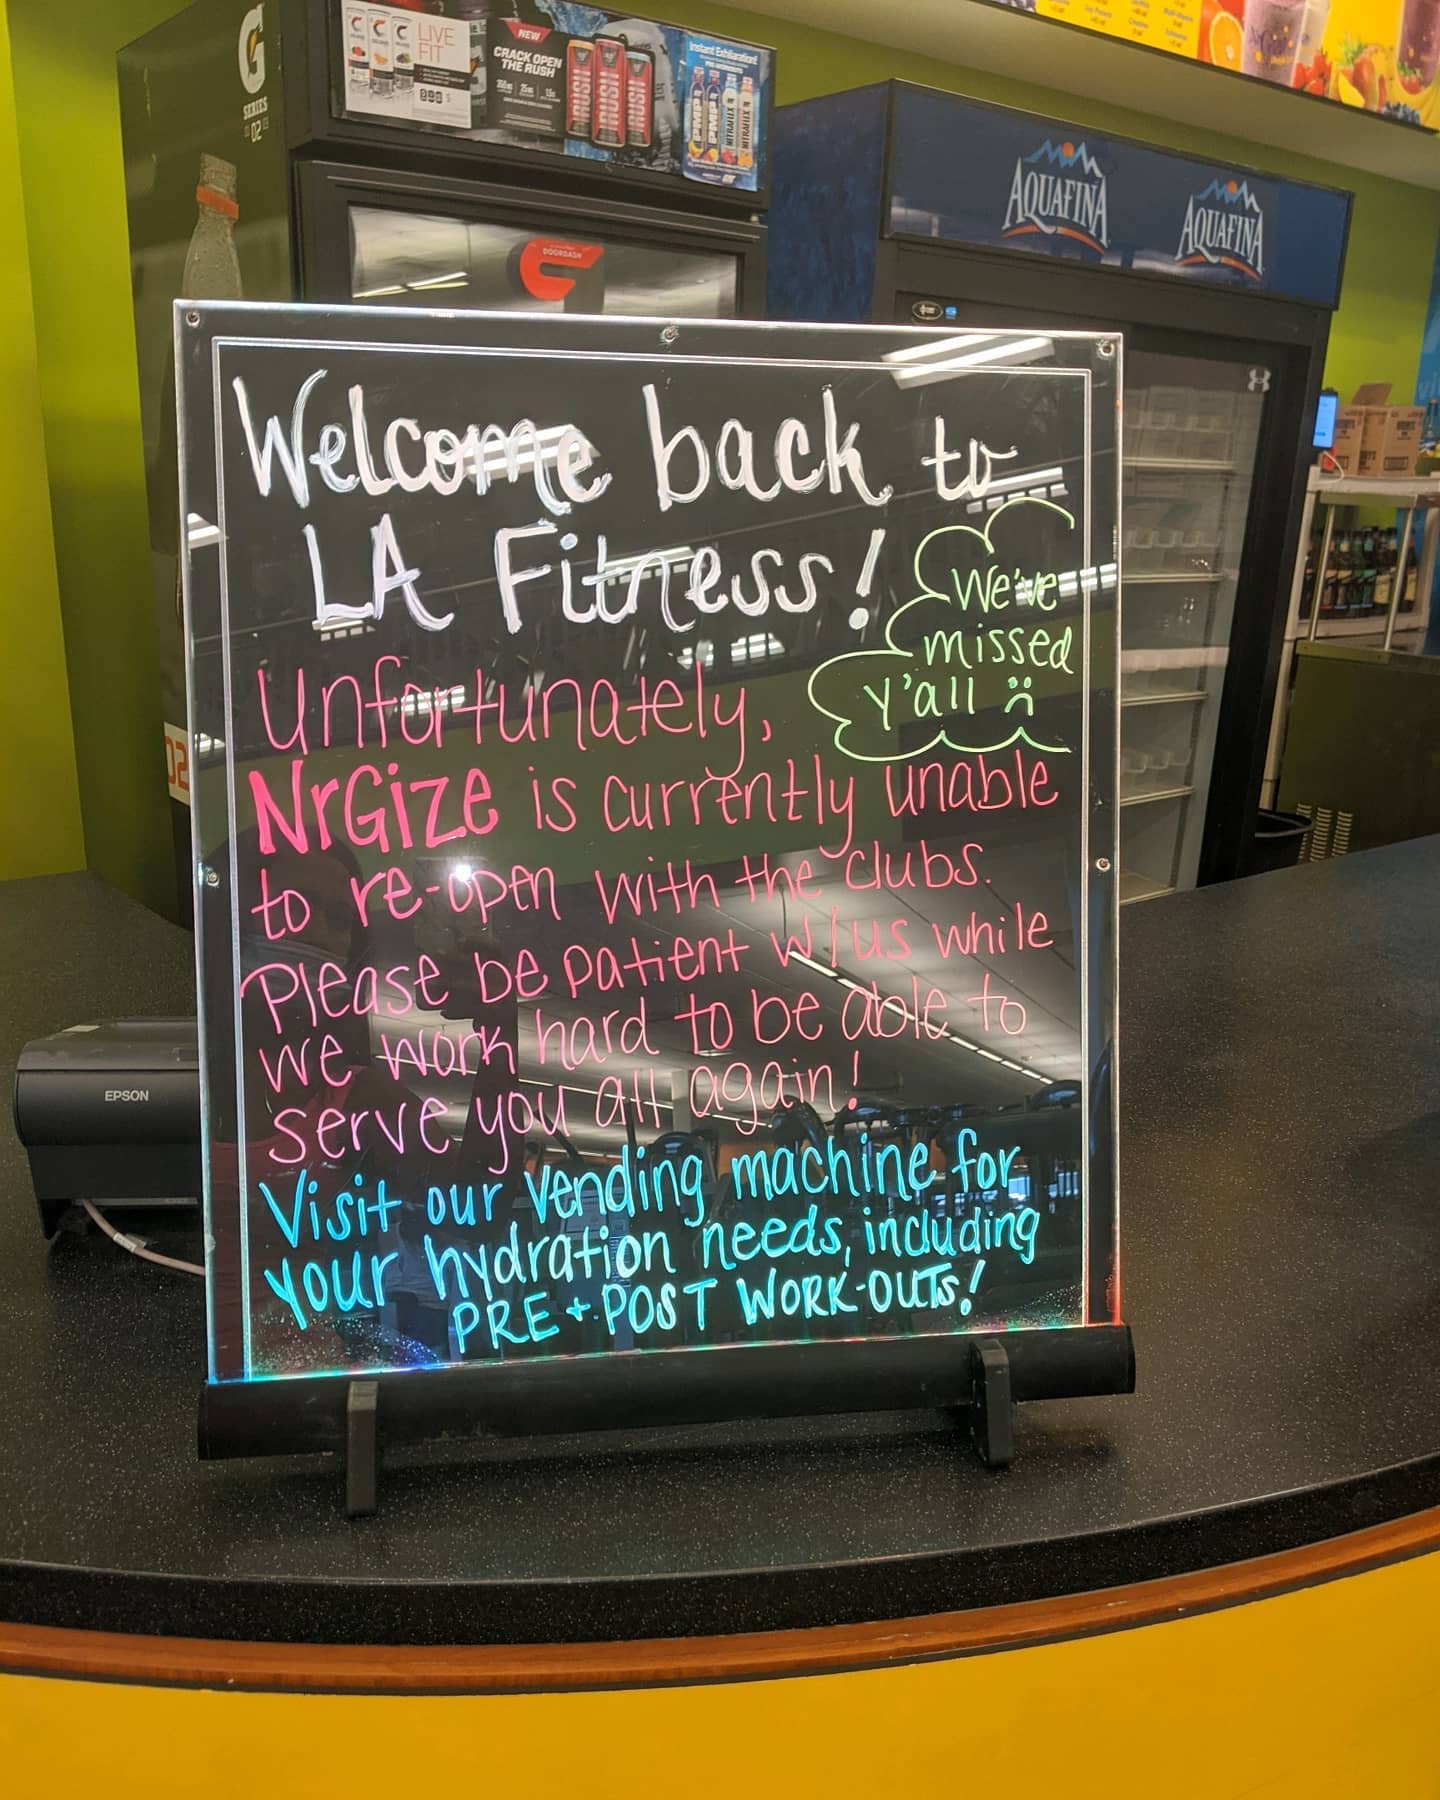 G
SERIES
02
LIVE
FIT
NEW
CRACK OPEN
THE RUSH
RUSH
RUSH
RUSH
Instant Exhilaration!
AQUAFINA
AQUAFINA
DOORDASH
Welcome back to
LA Fitness!
We've
missed
y'all
Unfortunately,
NrGize is currently unable
to re-open with the clubs.
Please be patient w/us while
we work hard to be able to
serve you all again!
Visit our vending machine for
your hydration needs, including
PRE + POST WORK-OUTS!
02
EPSON